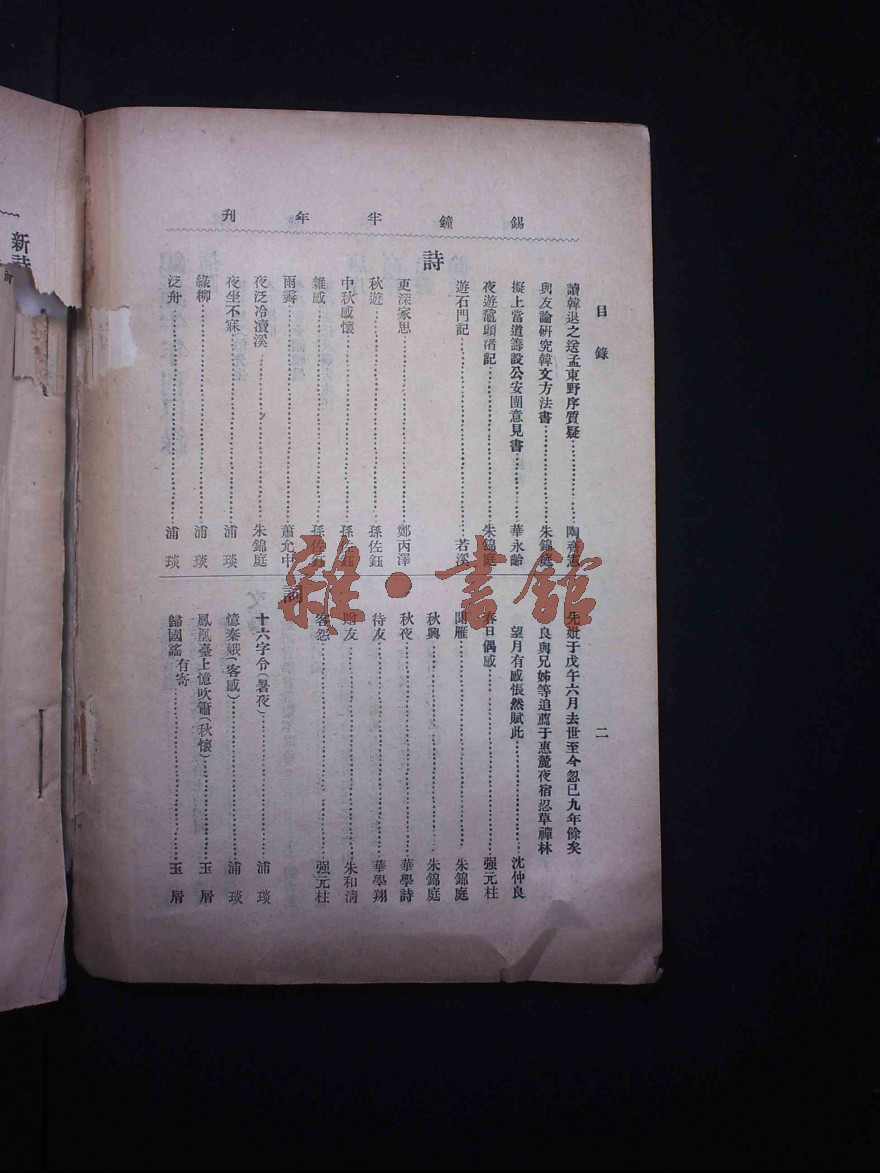 錫鐘半年刊
目錄
二
讀韓退之送孟東野序質疑
與友論研究韓文方法書 朱錦庭
擬上當道籌設公安團意見書 華永齡
夜遊黿頭渚記 朱錦庭
遊石門記 若溪
詩
更深家思 鄭丙澤
秋遊 孫佐鈺
中秋感懷 孫佐鈺
雜感 孫佐鈺
雨霽 蕭允中
夜泛冷瀆溪 朱錦庭
夜坐不寐 浦琰
綠柳 浦琰
泛舟 浦琰
先妣于戊午六月去世至今忽已九年餘矣
良與兄姊等追薦于惠麓夜宿忍草禪林
望月有感悵然賦此 沈仲良
春日偶感 强元柱
聞雁 朱錦庭
秋興 朱錦庭
秋夜 華學詩
待友 華學翔
贈友 朱和淸
客怨 强元柱
詞
十六字令(暑夜) 浦琰
憶秦娥(客感) 浦琰
鳳凰臺上憶吹簫(秋懷) 玉屑
歸國謠有寄 玉屑
新詩
雜·書館